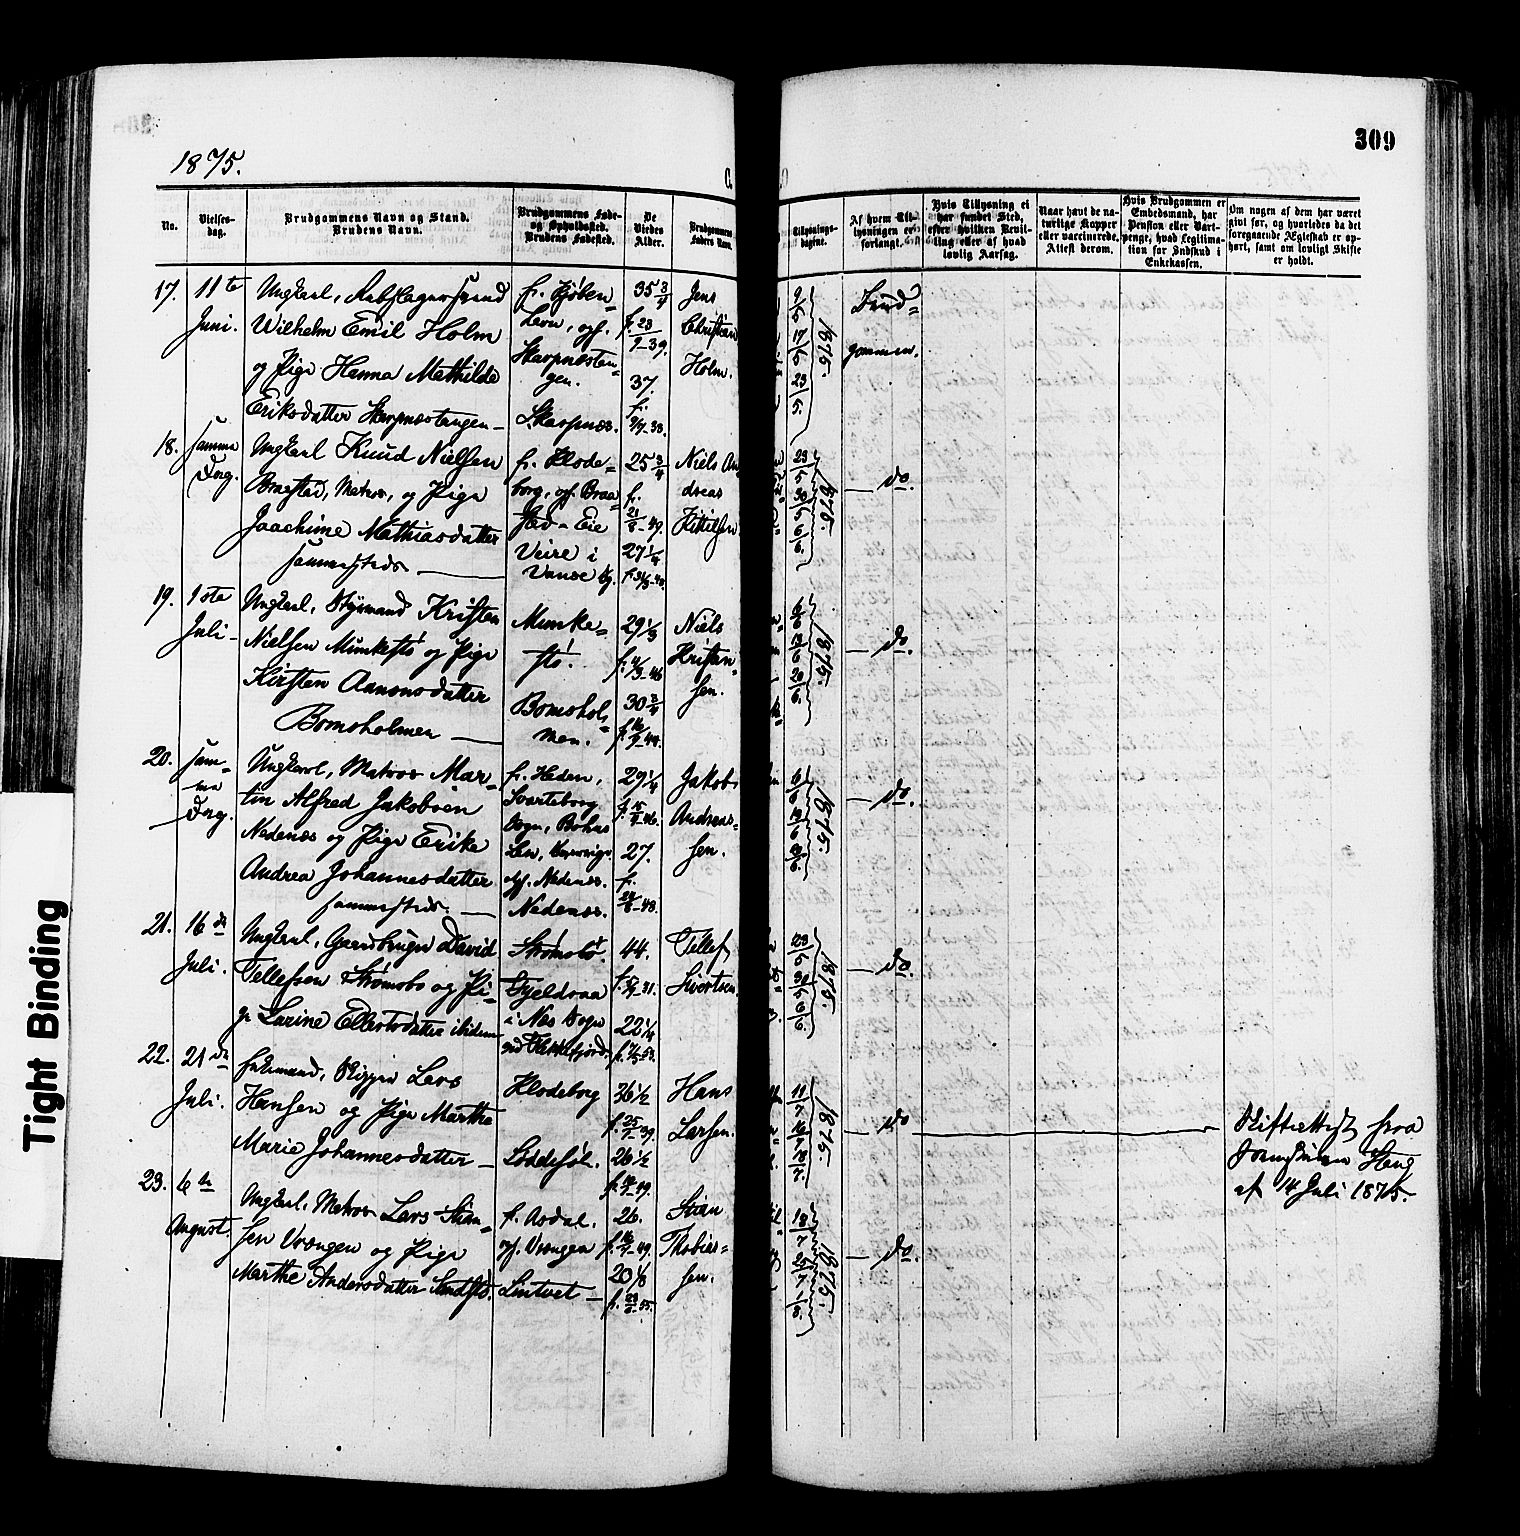 1875.
309
No.
Vielses-
dag.
Brudgommens Navn og Stand.
Brudens Navn.
Brudgommens Føde-
og Opholdssted.
Brudens Fødested.
De
Viedes
Alder.
Brudgommens
Faders Navn.
Tillysnings-
dagene.
Af hvem Til-
lysningen er
forlangt.
Hvis Tillysning ei
har fundet Sted,
efter hvilken Bevil-
ling eller af hvad
lovlig Aarsag.
Naar havt de na-
turlige Kopper
eller vaccinerede.
Attest derom.
Hvis Brudgommen er
Embedsmand, har
Pension eller Vart-
penge, hvad Legitima-
tion for Indskud i
Enkekassen.
Om nogen af dem har været
givt før, og hvorledes da det
foregaaende Ægteskab er op-
hørt, samt om lovligt Skifte
er holdt.
17. 11te Juni.
Ungkarl, Rebslagersvend
Wilhelm Emil Holm
og Pige Hanna Mathilde
Eriksdatter Skarpnæstangen
f. Kjöben-
havn, opf.
Skarpnæstan-
gen.
Skarpnæs.
35 3/4
f. 23/9-39.
37.
f.
Jens
Christian
Holm.
9/5 17/5 23/5. 1875.
Brud-
gommen.
18. samme Dag.
Ungkarl Knud Nielsen
Braastad, Matros, og Pige
Joachime Mathiasdatter
sammesteds
f. Klode-
borg, opf. Braa-
sted - Eie
Veire i
Vanse
25 3/4
f.
21/8-49.
27 1/4
Niels An
dreas
Kittilsen
23/5 30/5 6/6. 1875.
do.
19. 1ste Juli
Ungkarl, Styrmand Kristen
Nielsen Munkestö og Pige
Kirsten Aanonsdatter
Bomsholmen
Munke-
stö.
Bomshol-
men.
29 1/3
30 3/4
Niels
Kristen-
sen.
6/6 13/6 20/6. 1875.
do.
20. sam-
me
Dag.
Ungkarl, Matros Mar-
tin Alfred Jakobsen
Nedenæs og Pige Erike
Andrea Johannesdatter
sammesteds.
f. Heden,
Svarteborg
Sogn, Bohus
Len,
opf. Nedenæs.
Nedenæs.
29 1/4
27.
f.
24/6-48.
Jakob
Andreas-
sen.
6/6 13/6 1875.
do.
21. 16de Juli.
Ungkarl, Gaardbruger David
Tellefsen Strömsbo og Pi-
ge Larine Ellertsdatter ibidem
Strömsbö.
Gjeldraa
i Næs Sogn
ved Flekkefjord.
44.
22 1/4
Tellef
Sivertsen.
23/5 30/5 6/6. 1875.
do.
22. 21de Juli.
Enkemand, Skipper Lars
Hansen og Pige Marthe
Marie Johannesdatter
Klodeborg
Löddesöl.
36 1/2
f. 25/1-39.
26 1/2
Hans
Larsen.
11/7 18/7. 1875.
do
Skifteattest fra
af 14 Juli 1875.
23. 6te August.
Ungkarl, Matros Lars Stian-
sen Vrængen og Pige
Marthe Andersdatter
f. Asdal.
opf. Vrængen
Lintvet
26.
20 1/8
Stian
Thobias-
sen.
18/7 25/7 1/8. 1875.
do.
Tight Binding